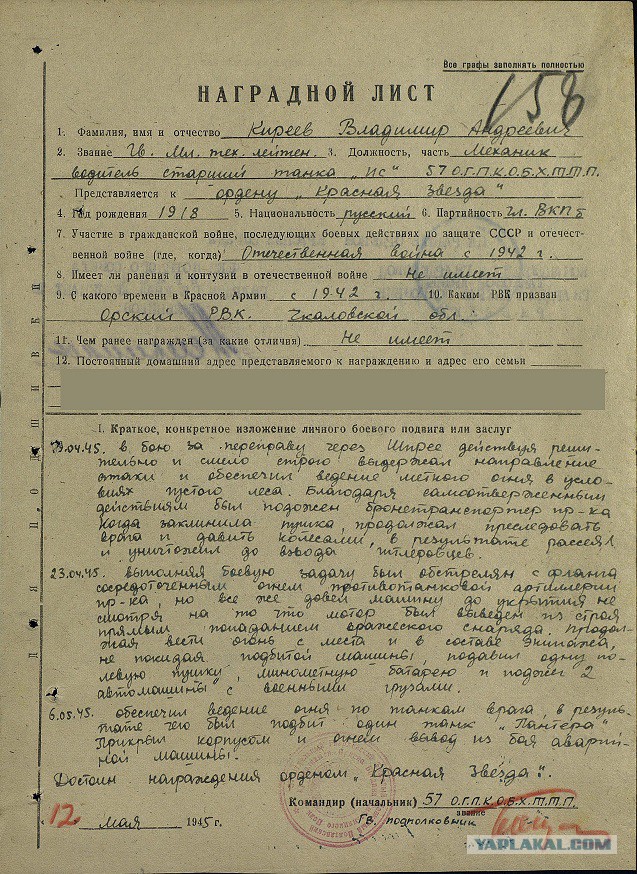 Все графы заполнять полностью
158
НАГРАДНОЙ ЛИСТ
1. Фамилия, имя и отчество Киреев Владимир Андреевич
2. Звание Гв. Мл. тех. лейтен. 3. Должность, часть Механик
водитель старший танка „ИС" 57 О.Г.П.К.О.Б.Х.Т.Т.П.
Представляется к ордену „Красная Звезда"
4. Год рождения 1918 5. Национальность русский 6. Партийность чл. ВКПб
7. Участие в гражданской войне, последующих боевых действиях по защите СССР и отечест-
венной войне (где, когда) Отечественная война с 1942 г.
8. Имеет ли ранения и контузии в отечественной войне Не имеет
9. С какого времени в Красной Армии с 1942 г. 10. Каким РВК призван
Орский РВК. Чкаловской обл.
11. Чем ранее награжден (за какие отличия) Не имеет
12. Постоянный домашний адрес представляемого к награждению и адрес его семьи
I. Краткое, конкретное изложение личного боевого подвига или заслуг
.04.45. в бою за переправу через Шпрее действуя реши-
тельно и смело строго выдержал направление
атаки и обеспечил ведение меткого огня в усло-
виях густого леса. Благодаря самоотверженным
действиям был подожен бронетранспортер пр-ка
когда заклинила пушка, продолжал преследовать
врага и давить колесами, в результате рассеял
и уничтожил до взвода гитлеровцев.
23.04.45. выполняя боевую задачу был обстрелян с фланга
сосредоточенным огнем противотанковой артиллерии
пр-ка, но все же довел машину до укрытия не
смотря на то что мотор был выведен из строя
прямым попаданием вражеского снаряда. Продол-
жая вести огонь с места и в составе экипажа,
не покидая подбитой машины, подавил одну по-
левую пушку, минометную батарею и поджег 2
автомашины с военными грузами.
6.05.45. обеспечил ведение огня по танкам врага, в резуль-
тате чего был подбит один танк „Пантера"
Прикрыл корпусом и огнем вывод из боя аварий-
ной машины.
Достоин награждения орденом „Красная Звезда".
Командир (начальник) 57 О.Г.П.К.О.Б.Х.Т.Т.П.
звание
12 мая 1945 г. Гв. подполковник
ЛИНИЯ ПОДШИВКИ
YAPLAKAL.COM